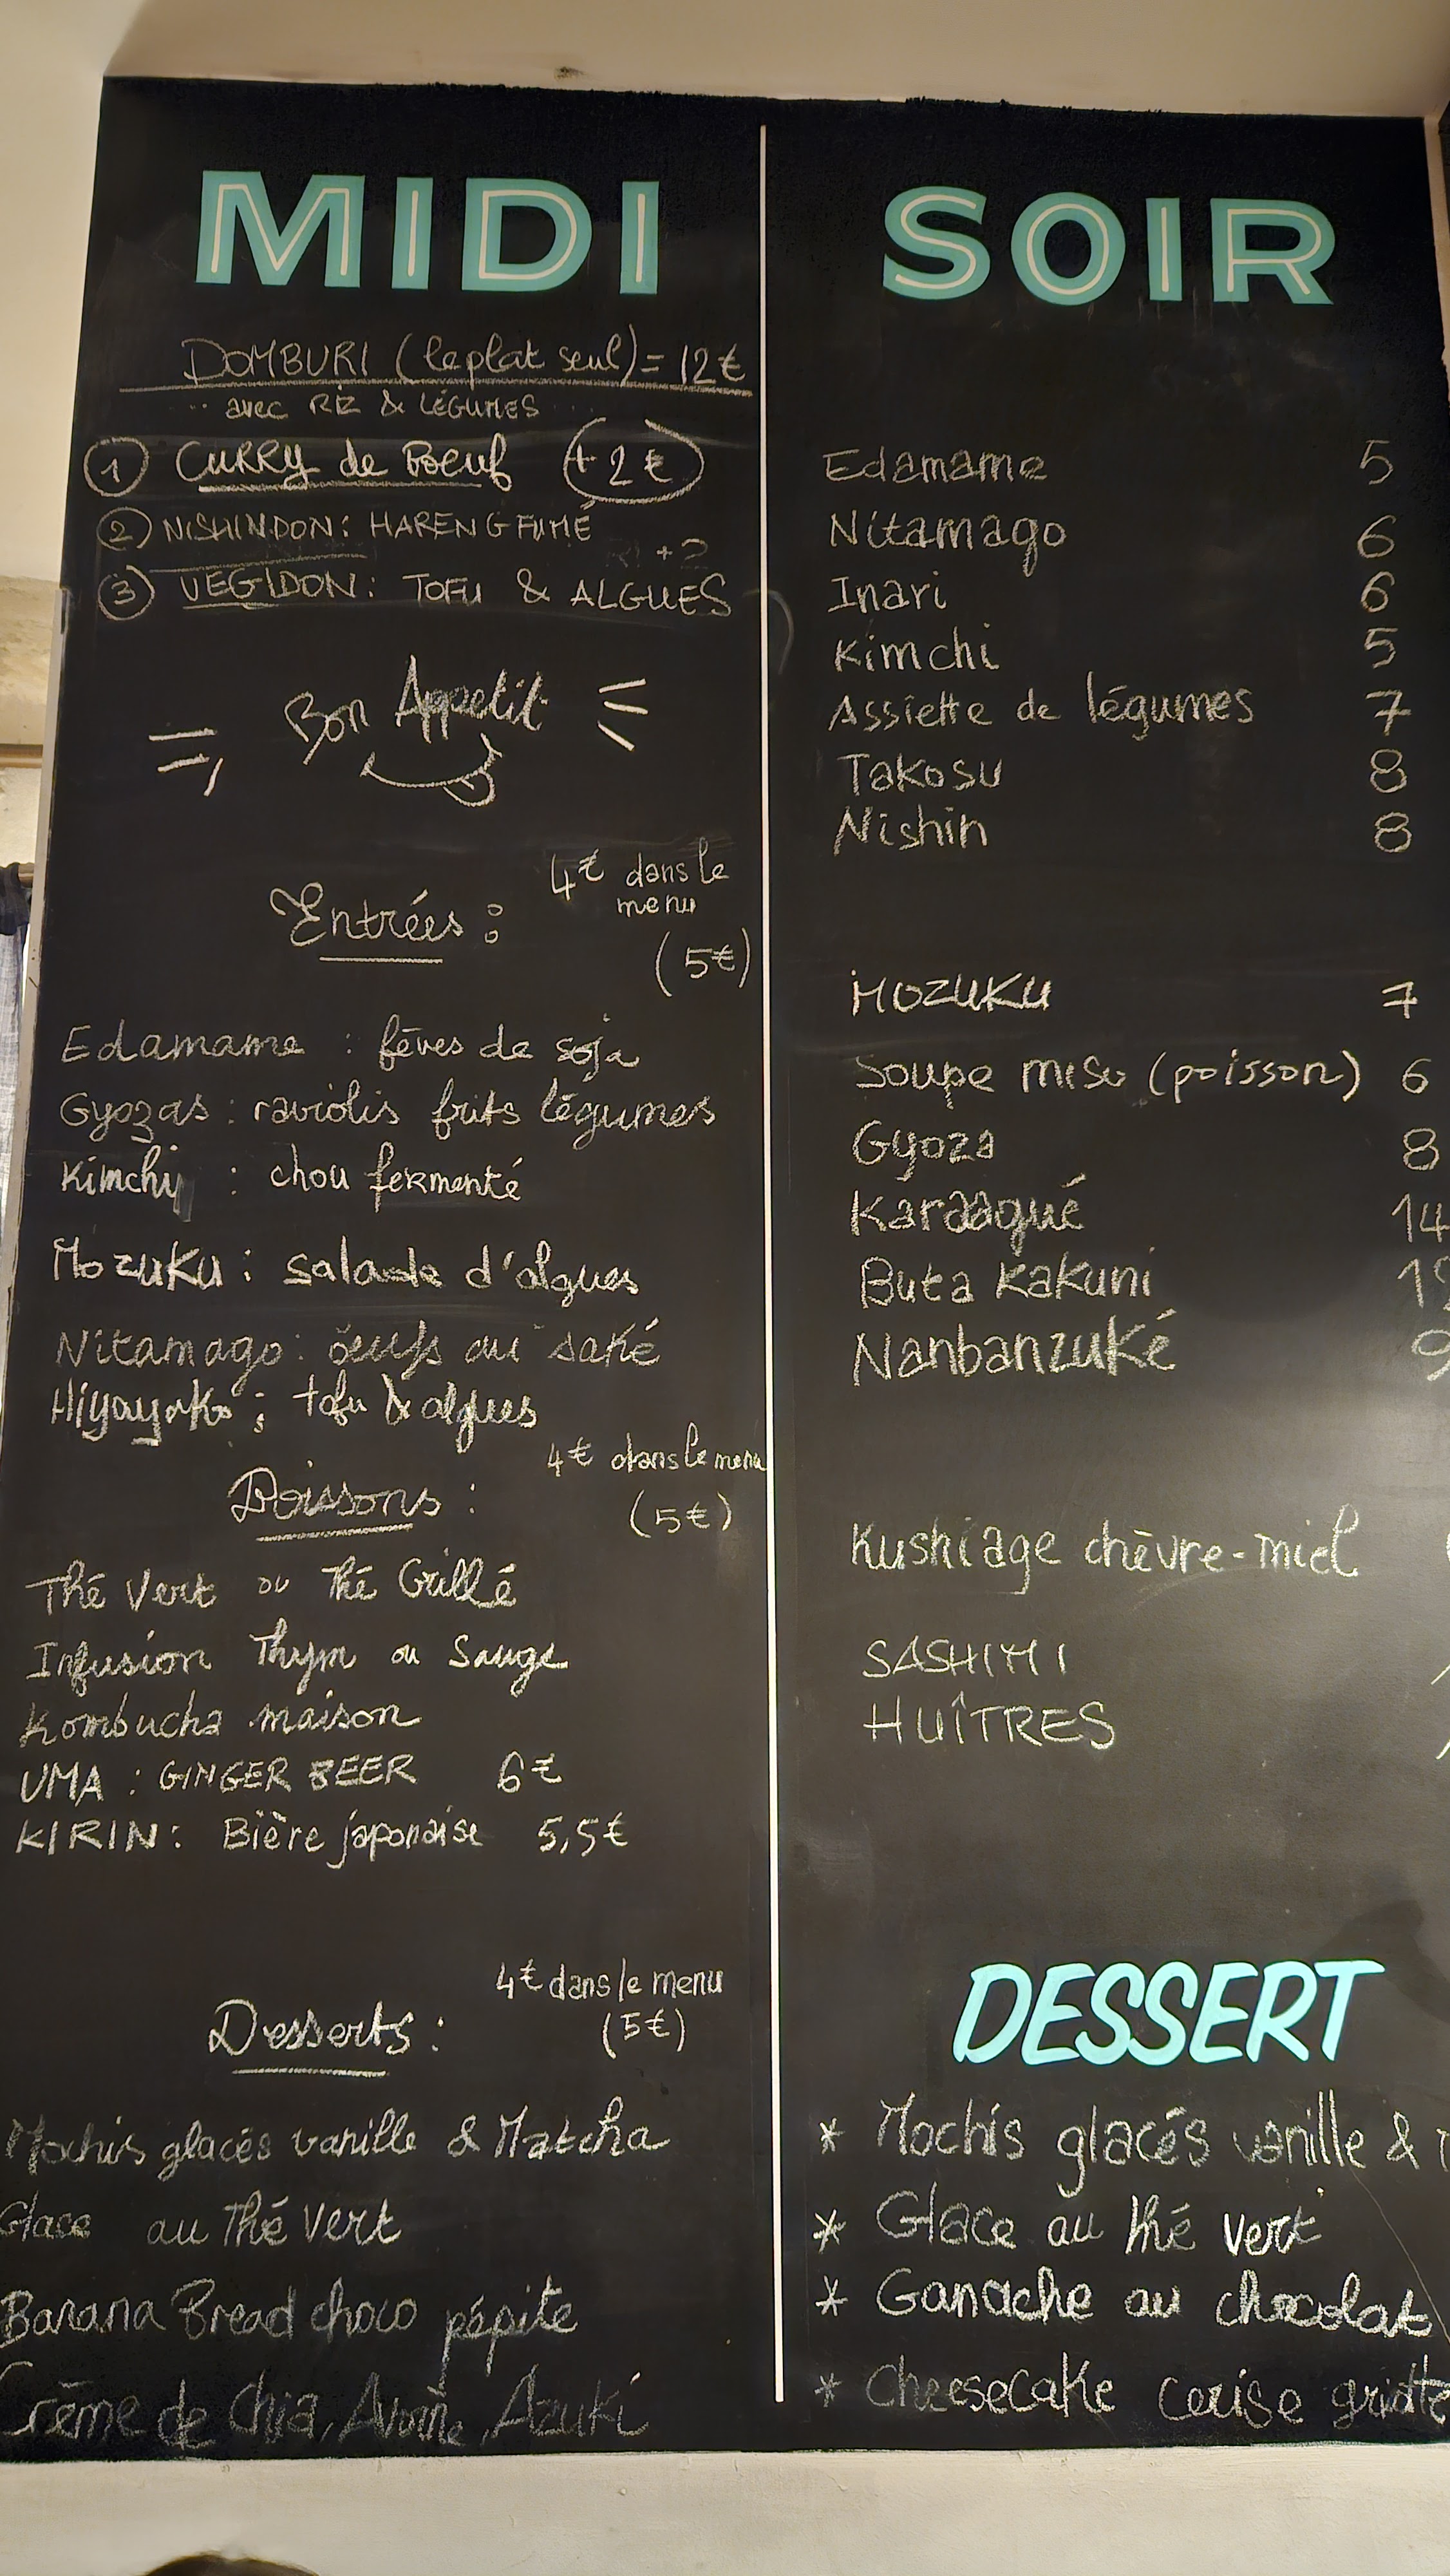 MIDI
DOMBURI (le plat seul) = 12€
avec RIZ & LÉGUMES
① CURRY de Boeuf (+2€)
② NISHINDON: HARENG FUMÉ
+2
③ VEGIDON: TOFU & ALGUES
Bon Appetit
Entrées :
4€ dans le
menu
(5€)
Edamame : fèves de soja
Gyozas : raviolis frits légumes
Kimchi : chou fermenté
Mozuku : salade d'algues
Nitamago : oeufs au saké
Hiyayako : tofu & algues
4€ dans le menu
Boissons :
(5€)
Thé Vert ou Thé Grillé
Infusion Thym ou Sauge
Kombucha maison
UMA : GINGER BEER 6€
KIRIN : Bière japonaise 5,5€
4€ dans le menu
Desserts :
(5€)
Mochis glacés vanille & Matcha
Glace au Thé Vert
Banana Bread choco pépite
Crème de Chia, Azuki
SOIR
Edamame 5
Nitamago 6
Inari 6
Kimchi 5
Assiette de légumes 7
Takosu 8
Nishin 8
MOZUKU 7
Soupe miso (poisson) 6
Gyoza 8
Karaagué 14
Buta Kakuni
Nanbanzuké 9
Kushiage chèvre-miel
SASHIMI
HUÎTRES
DESSERT
* Mochis glacés vanille &
* Glace au thé vert
* Ganache au chocolat
* Cheesecake cerise griotte